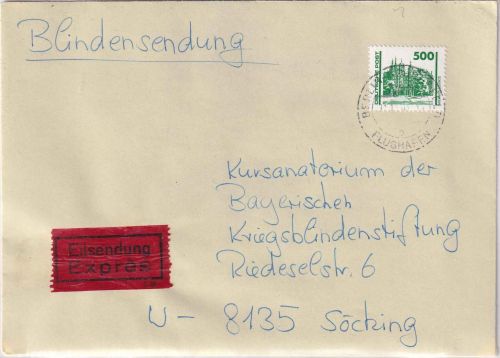 Blindensendung
500
DEUTSCHE POST
FLUGHAFEN
Kursanatorium der
Bayerischen
Kriegsblindenstiftung
Riedeselstr. 6
W- 8135 Söcking
Eilsendung
Exprès